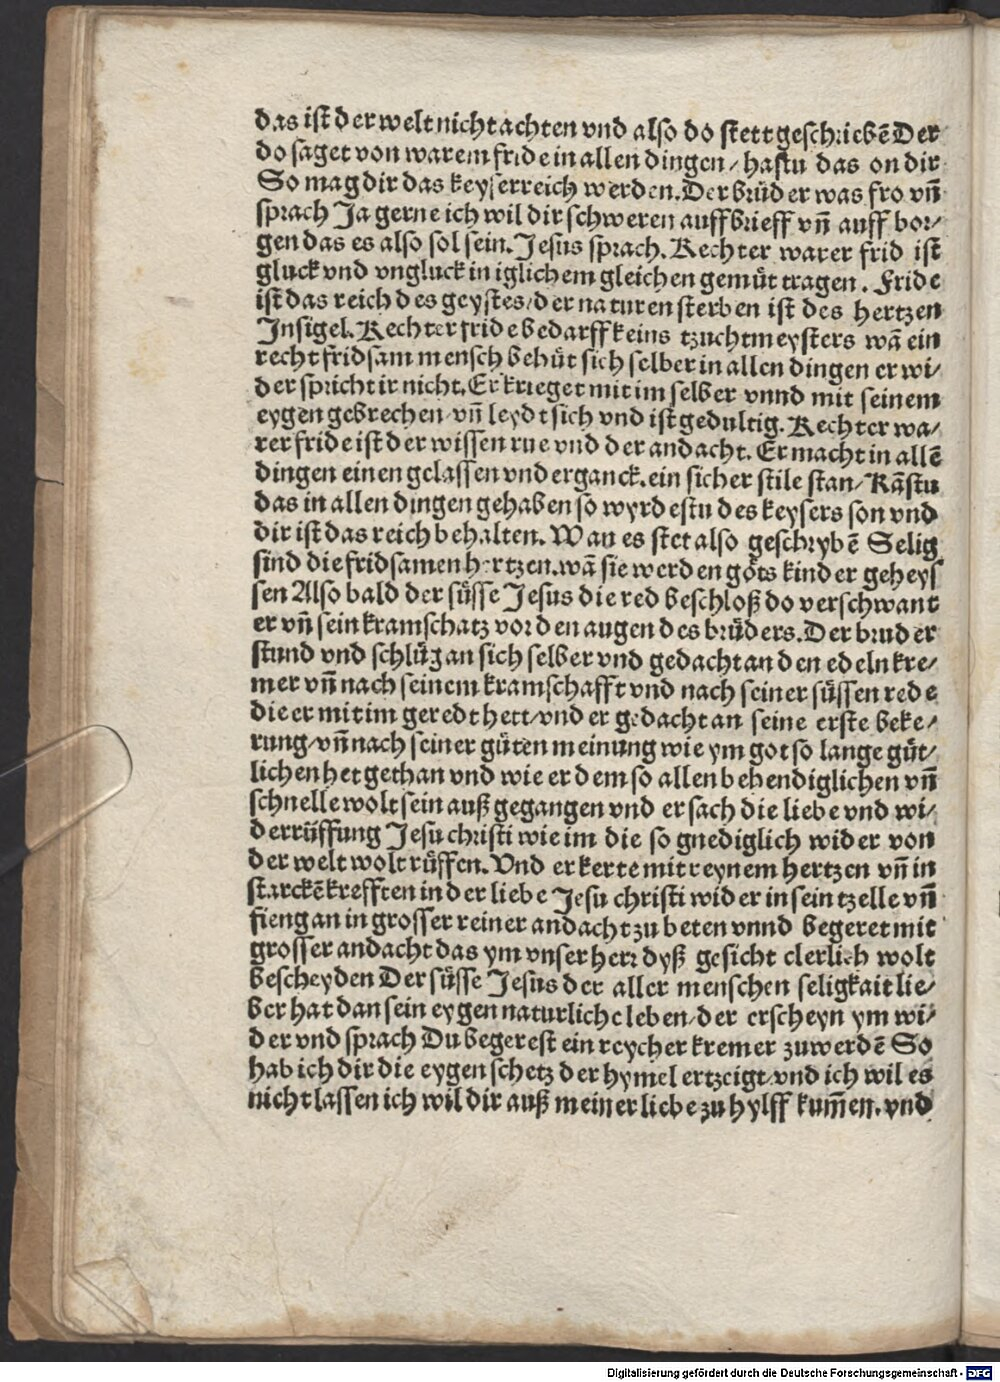 das ist der welt nicht achten vnd also do stett geschriebē Der
do saget von warem fride in allen dingen / hastu das on dir
So mag dir das keyserreich werden. Der brůder was fro vñ
sprach Ja gerne ich wil dir schweren auff brieff vñ auff bor/
gen das es also sol sein. Jesus sprach. Rechter warer frid ist
gluck vnd vngluck in iglichem gleichen gemůt tragen. Fride
ist das reich des geystes / der naturen sterben ist des hertzen
Insigel. Rechter fride bedarff keins tzuchtmeysters wā ein
recht fridsam mensch behůt sich selber in allen dingen er wi/
der spricht ir nicht. Er krieget mit im selber vnnd mit seinem
eygen gebrechen vñ leydt sich vnd ist gedultig. Rechter wa/
rer fride ist der wissen rue vnd der andacht. Er macht in allē
dingen einen gelassen vnderganck. ein sicher stile stan / Kāstu
das in allen dingen gehaben so wyrdestu des keysers son vnd
dir ist das reich behalten. Wan es stet also geschrybē Selig
sind die fridsamen hertzen. wā sie werden gots kinder geheys
sen Also bald der sůsse Jesus die red beschloß do verschwant
er vñ sein kramschatz vor den augen des brůders. Der bruder
stund vnd schlůg an sich selber vnd gedacht an den edeln kre/
mer vñ nach seinem kramschafft vnd nach seiner sůssen rede
die er mit im geredt hett / vnd er gedacht an seine erste beke/
rung / vñ nach seiner gůten meinung wie ym got so lange gůt/
lichen het gethan vnd wie er dem so allen behendiglichen vñ
schnelle wolt sein auß gegangen vnd er sach die liebe vnd wi/
derrůffung Jesu christi wie im die so gnediglich wider von
der welt wolt růffen. Vnd er kerte mit reynem hertzen vñ in
starckē krefften in der liebe Jesu christi wider in sein tzelle vñ
fieng an in grosser reiner andacht zu beten vnnd begeret mit
grosser andacht das ym vnser herr dyß gesicht clerlich wolt
bescheyden Der sůsse Jesus der aller menschen seligkait lie/
ber hat dan sein eygen naturliche leben / der erscheyn ym wi/
der vnd sprach Du begerest ein reycher kremer zuwerdē So
hab ich dir die eygen schetz der hymel ertzeigt / vnd ich wil es
nicht lassen ich wil dir auß meiner liebe zu hylff kum̄en. vnd
Digitalisierung gefördert durch die Deutsche Forschungsgemeinschaft - DFG